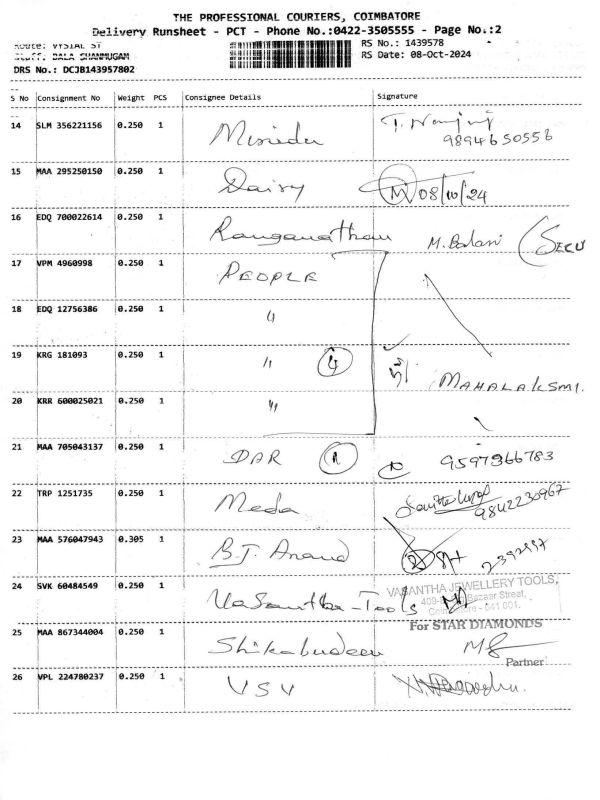 THE PROFESSIONAL COURIERS, COIMBATORE
Delivery Runsheet - PCT - Phone No.:0422-3505555 - Page No.:2
Route: VYSIAL ST
RS No.: 1439578
Staff: BALA SHANMUGAM
RS Date: 08-Oct-2024
DRS No.: DCJB143957802
S No Consignment No Weight PCS Consignee Details Signature
14 SLM 356221156 0.250 1
9894650556
15 MAA 295250150 0.250 1 Daisy 08/10/24
16 EDQ 700022614 0.250 1 Ranganathan M. Balani (SECU
17 VPM 4960998 0.250 1 PEOPLE
18 EDQ 12756386 0.250 1 "
19 KRG 181093 0.250 1 " 4 MAHALAKSMI.
20 KRR 600025021 0.250 1 "
21 MAA 705043137 0.250 1 DAR 9597366783
22 TRP 1251735 0.250 1 Meda 9842230967
23 MAA 576047943 0.305 1 B.J. Anand
24 SVK 60484549 0.250 1 Vasantha-Tools
VASANTHA JEWELLERY TOOLS,
409- Bazaar Street,
Coimbatore - 641 001.
For STAR DIAMONDS
25 MAA 867344004 0.250 1 Shikabudeen
Partner
26 VPL 224780237 0.250 1 VSV